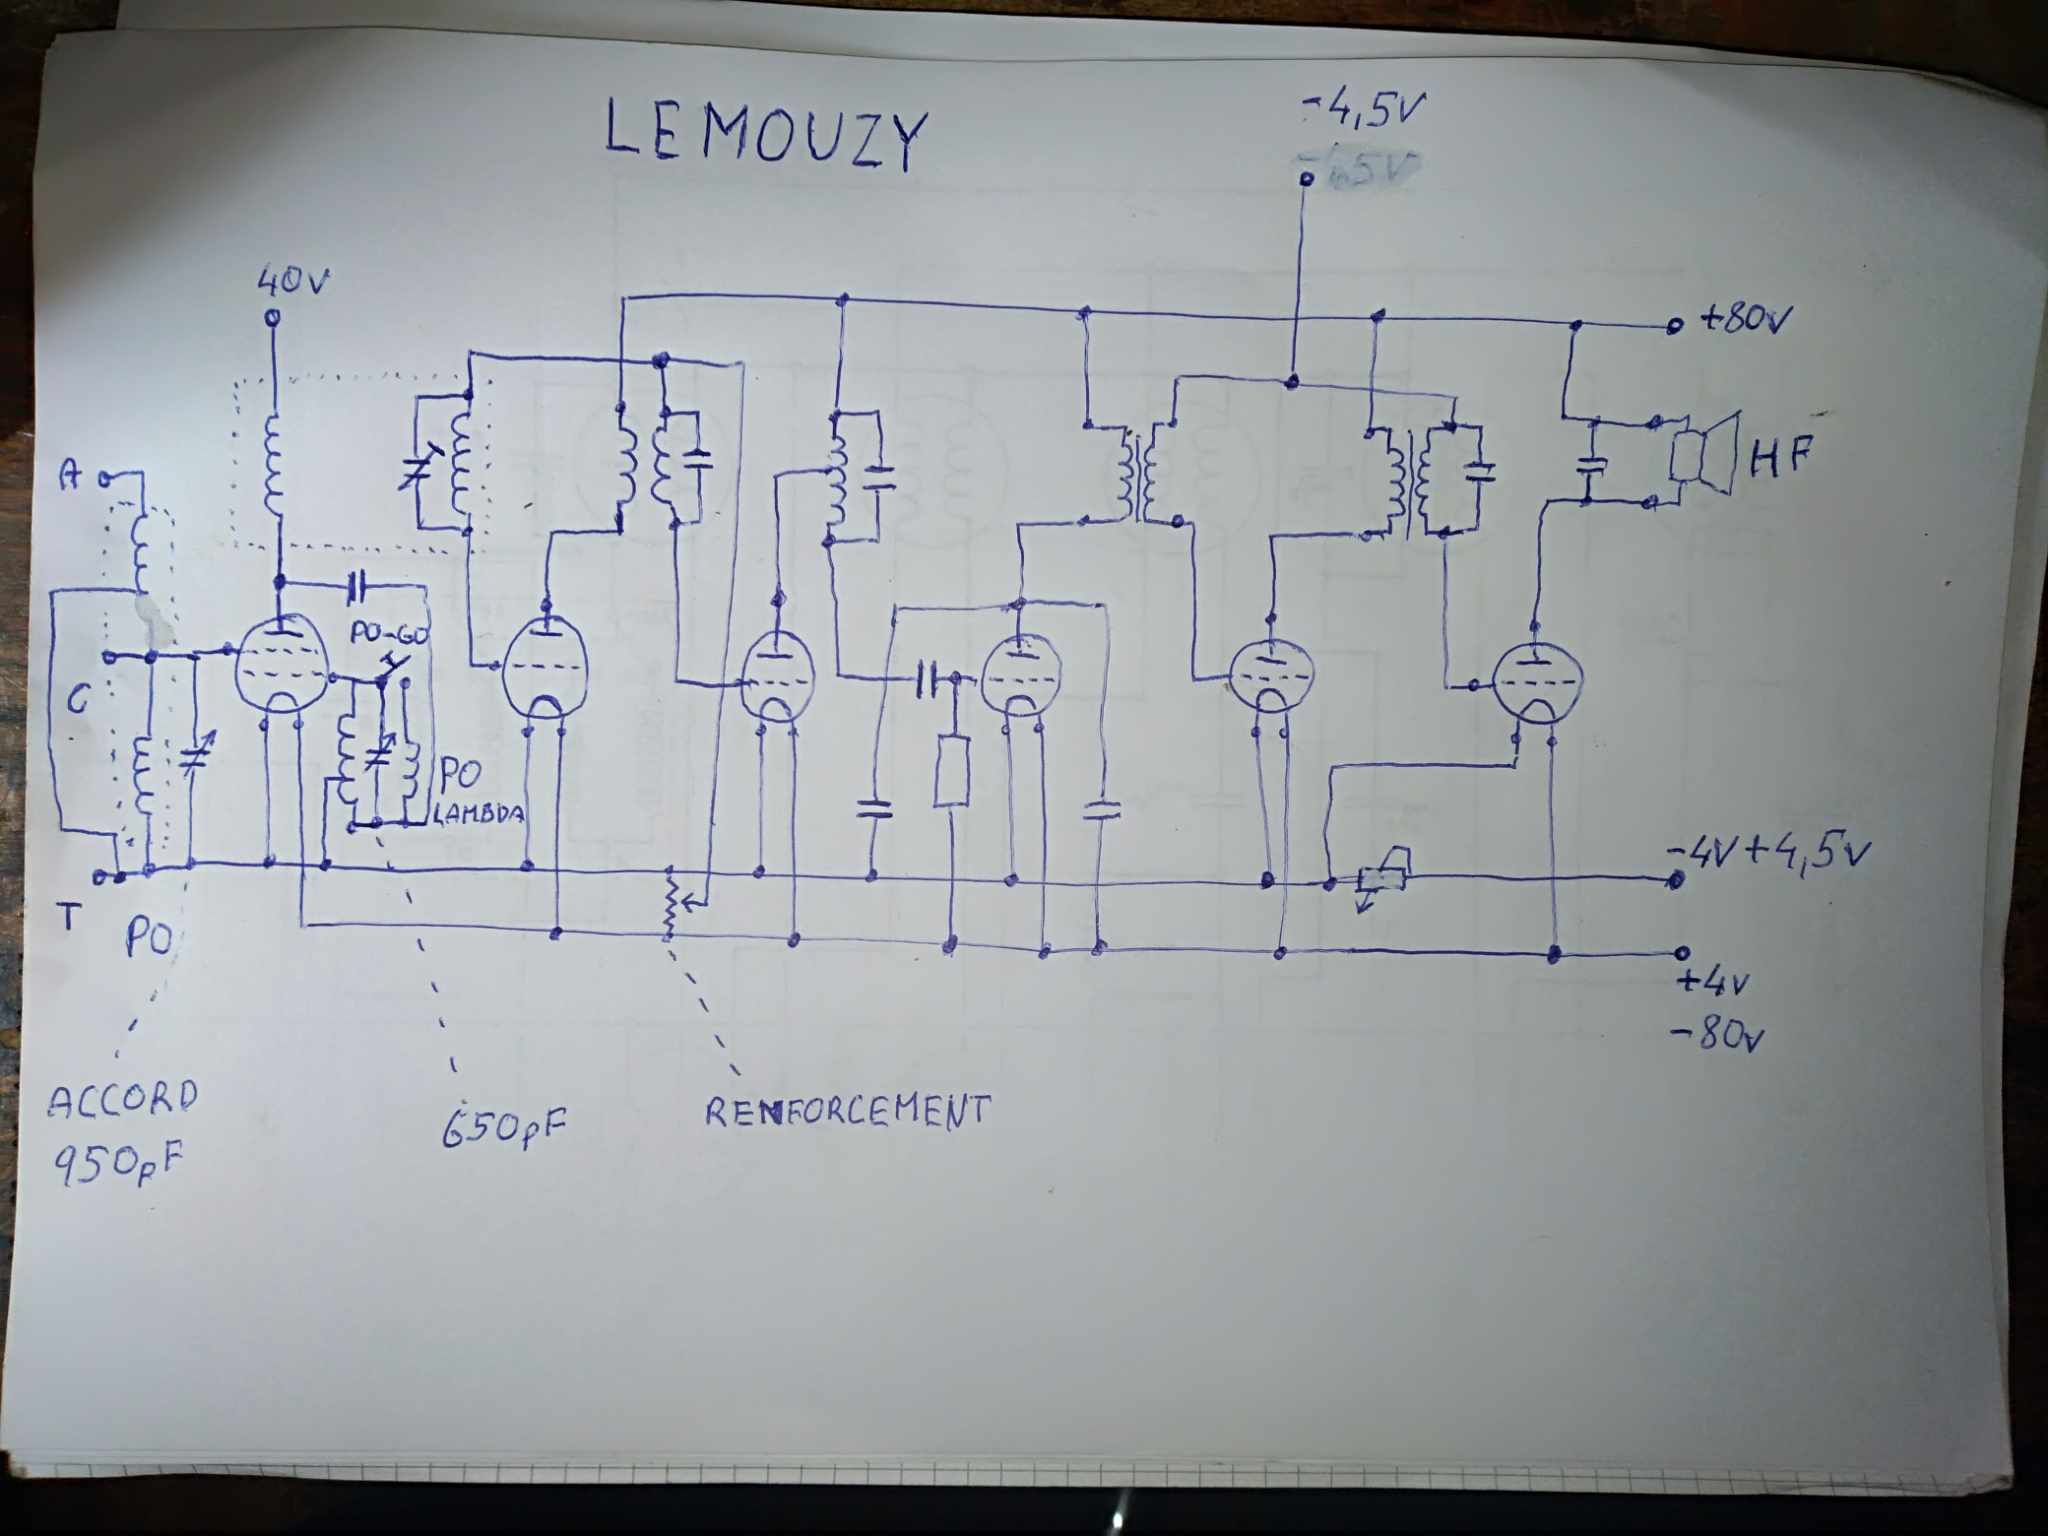 LEMOUZY
-4,5V
40V
+80V
A
HF
PO-GO
C
PO
LAMBDA
-4V+4,5V
T
PO
+4V
-80V
ACCORD
950pF
650pF
RENFORCEMENT